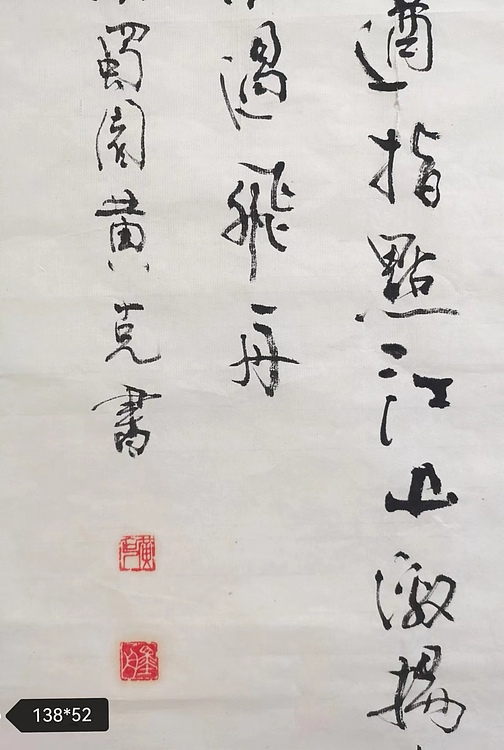 遒指點江山激揚
遏飛舟
蜀園黄克書
138*52